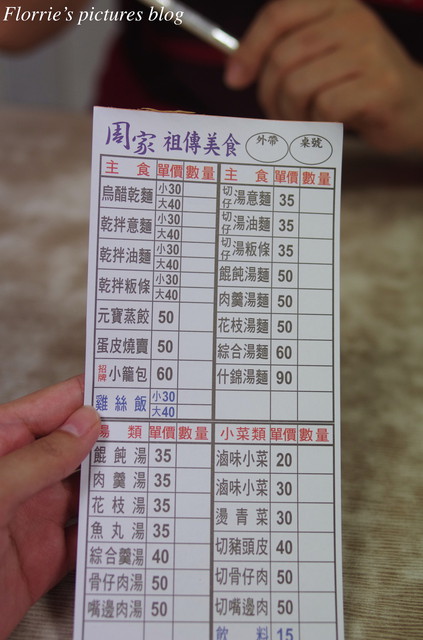 Florrie's pictures blog
周家 祖傳美食 外帶 桌號
主食 單價 數量
烏醋乾麵 小30 大40
乾拌意麵 小30 大40
乾拌油麵 小30 大40
乾拌粄條 小30 大40
元寶蒸餃 50
蛋皮燒賣 50
招牌 小籠包 60
雞絲飯 小30 大40
主食 單價 數量
切仔湯意麵 35
切仔湯油麵 35
切仔湯粄條 35
餛飩湯麵 50
肉羹湯麵 50
花枝湯麵 50
綜合湯麵 60
什錦湯麵 90
湯類 單價 數量
餛飩湯 35
肉羹湯 35
花枝湯 35
魚丸湯 35
綜合羹湯 40
骨仔肉湯 50
嘴邊肉湯 50
小菜類 單價 數量
滷味小菜 20
滷味小菜 30
燙青菜 30
切豬頭皮 40
切骨仔肉 50
切嘴邊肉 50
飲料 15